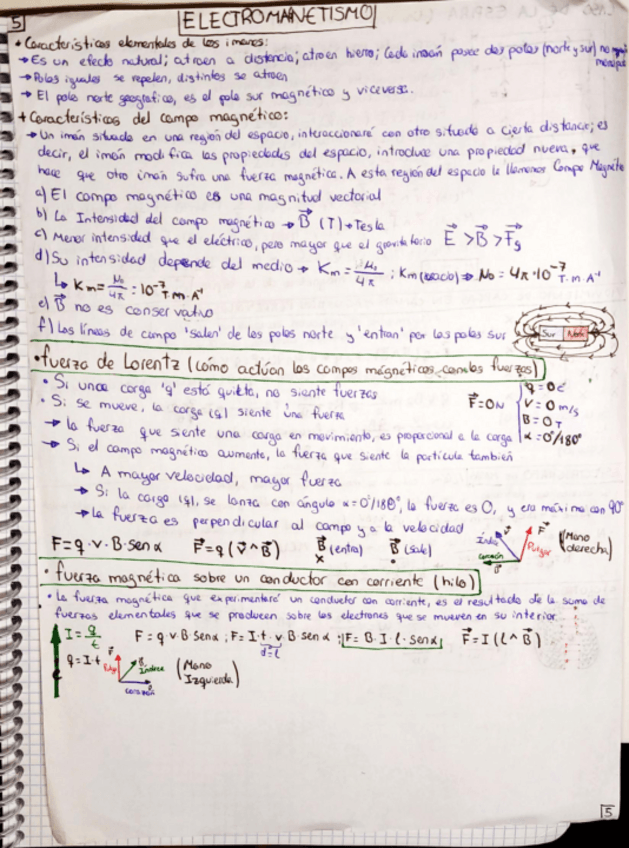 5
ELECTROMAGNETISMO
• Características elementales de los imanes:
→ Es un efecto natural; atraen a distancia; atraen hierro; Cada imán posee dos polos (norte y sur) no
→ Polos iguales se repelen, distintos se atraen
→ El polo norte geográfico, es el polo sur magnético y viceversa.
+ Características del campo magnético:
→ Un imán situado en una región del espacio, interaccionará con otro situado a cierta distancia; es
decir, el imán modifica las propiedades del espacio, introduce una propiedad nueva, que
hace que otro imán sufra una fuerza magnética. A esta región del espacio le llamamos Campo Magnéto
a) El campo magnético es una magnitud vectorial
b) La Intensidad del campo magnético → B⃗ (T) → Tesla
c) Menor intensidad que el eléctrico, pero mayor que el gravitatorio E⃗ > B⃗ > F⃗g
d) Su intensidad depende del medio → Km = μμ₀/4π ; Km (vacío) ⇒ μ₀ = 4π·10⁻⁷ T·m·A⁻¹
↳ Km = μ₀/4π = 10⁻⁷ T·m·A⁻¹
e) B⃗ no es conservativo
f) Las líneas de campo 'salen' de los polos norte y 'entran' por los polos sur
Sur Norte
• fuerza de Lorentz (cómo actúan los campos magnéticos con las fuerzas)
• Si una carga 'q' está quieta, no siente fuerzas
• Si se mueve, la carga (q) siente una fuerza
F⃗ = 0N { q = 0 c
v = 0 m/s
B = 0 T
α = 0°/180°
→ la fuerza que siente una carga en movimiento, es proporcional a la carga
→ Si el campo magnético aumenta, la fuerza que siente la partícula también
↳ A mayor velocidad, mayor fuerza
→ Si la carga (q), se lanza con ángulo α = 0°/180°, la fuerza es 0, y era máxima con 90°
→ La fuerza es perpendicular al campo y a la velocidad
F = q · v · B · sen α F⃗ = q (v⃗ ^ B⃗) B⃗ (entra) x B⃗ (sale) •
Índice v⃗ F⃗ Pulgar corazón B⃗ (Mano derecha)
• fuerza magnética sobre un conductor con corriente (hilo)
• La fuerza magnética que experimentará un conductor con corriente, es el resultado de la suma de
fuerzas elementales que se producen sobre los electrones que se mueven en su interior
I = q/t F = q v B sen α ; F = I · t · v B sen α ; F = B · I · l · sen α F⃗ = I (l ^ B⃗)
d = l
q = I · t F⃗ Pulgar Índice corazón (Mano Izquierda)
5